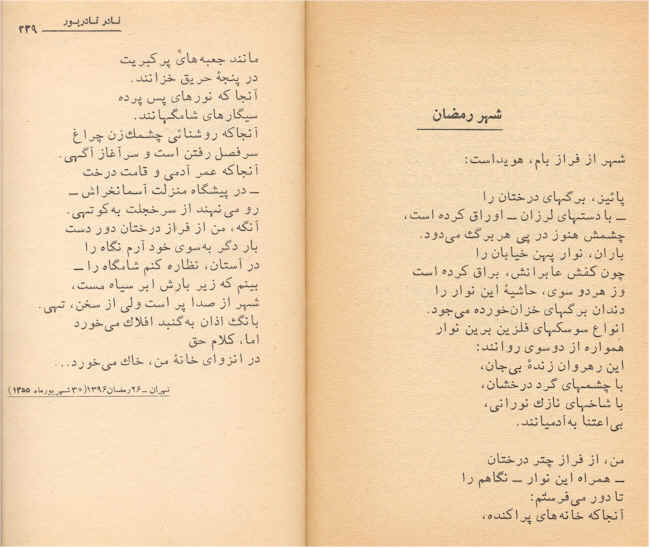 شهر رمضان
شهر از فراز بام، هویداست:
پائیز، برگهای درختان را
ــ با دستهای لرزان ــ اوراق کرده است،
چشمش هنوز در پی هر برگ می‌دود.
باران، نوار پهن خیابان را
چون کفش عابرانش، براق کرده است
وز هر دو سوی، حاشیهٔ این نوار را
دندان برگهای خزان‌خورده می‌جود.
انواع سوسکهای فلزین برین نوار
همواره از دو سوی روانند:
این رهروان زندهٔ بی‌جان،
با چشمهای گرد درخشان،
با شاخهای نازك نورانی،
بی‌اعتنا به آدمیانند.
من، از فراز چتر درختان
ــ همراه این نوار ــ نگاهم را
تا دور می‌فرستم:
آنجا که خانه‌های پراکنده،
نادر نادرپور
۲۳۹
مانند جعبه‌های پر کبریت
در پنجهٔ حریق خزانند.
آنجا که نورهای پس پرده
سیگارهای شامگهانند.
آنجا که روشنائی چشمك‌زن چراغ
سرفصل رفتن است و سرآغاز آگهی.
آنجا که عمر آدمی و قامت درخت
ــ در پیشگاه منزلت آسمانخراش ــ
رو می‌نهند از سر خجلت به کوتهی.
آنگه، من از فراز درختان دور دست
بار دگر به‌سوی خود آرم نگاه را
در آستان، نظاره کنم شامگاه را ــ
بینم که زیر بارش ابر سیاه مست،
شهر از صدا پر است ولی از سخن، تهی.
بانگ اذان به‌گنبد افلاك می‌خورد
اما، کلام حق
در انزوای خانهٔ من، خاك می‌خورد...
تهران ــ ۲۶ رمضان ۱۳۹۶ (۳۰ شهریورماه ۱۳۵۵)